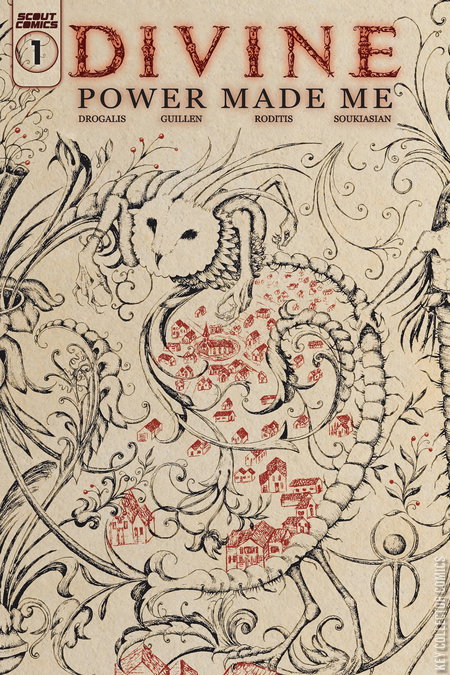 SCOUT COMICS
1
DIVINE
POWER MADE ME
DROGALIS GUILLEN RODITIS SOUKIASIAN
KEY COLLECTOR COMICS